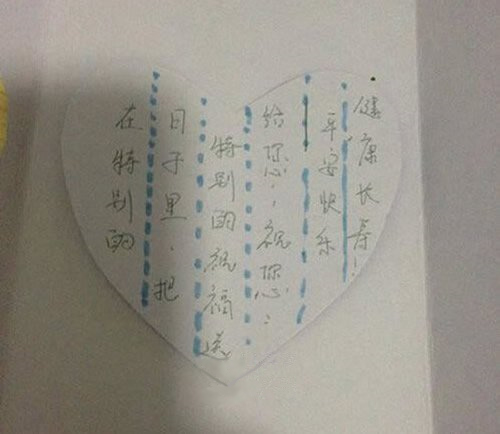 在特别的
日子里,把
特别的祝福送
给您,祝您:
平安快乐
健康长寿!